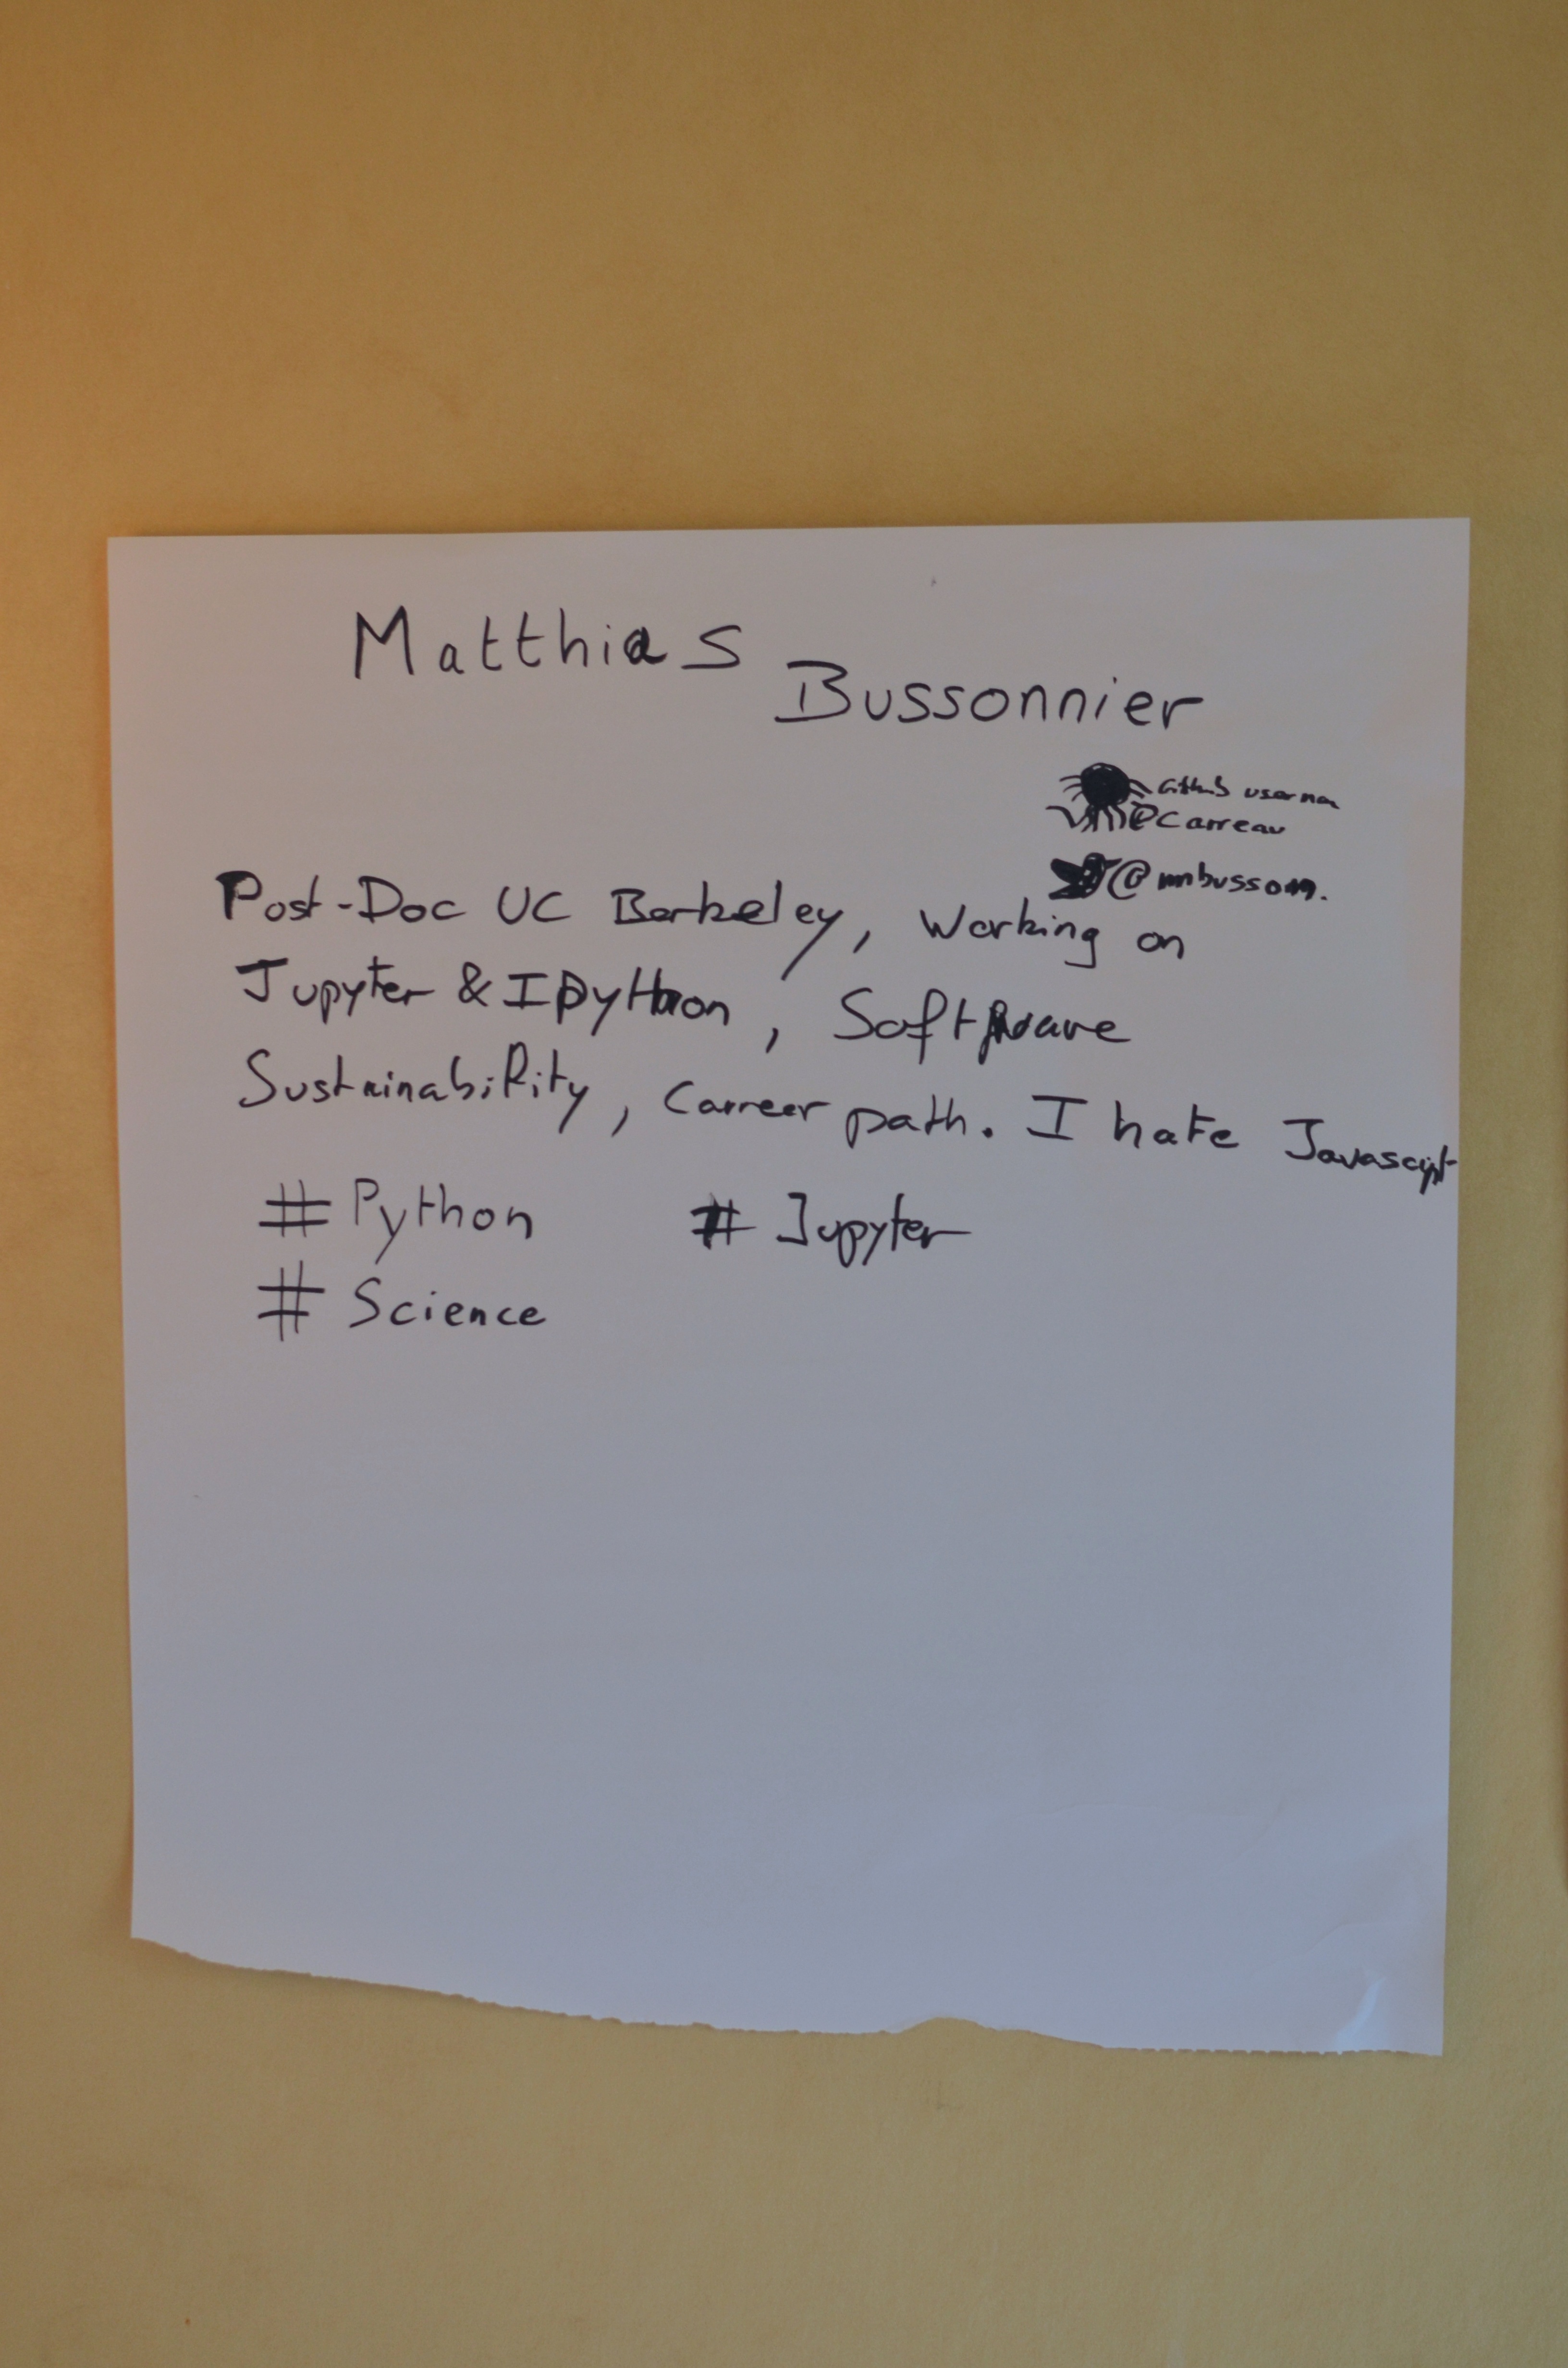 Matthias
Bussonnier
Github userna
@Carreau
@mbussonn.
Post-Doc UC Berkeley, Working on
Jupyter & IPython, Software
Sustainability, Carreer path. I hate Javascript
# Python # Jupyter
# Science